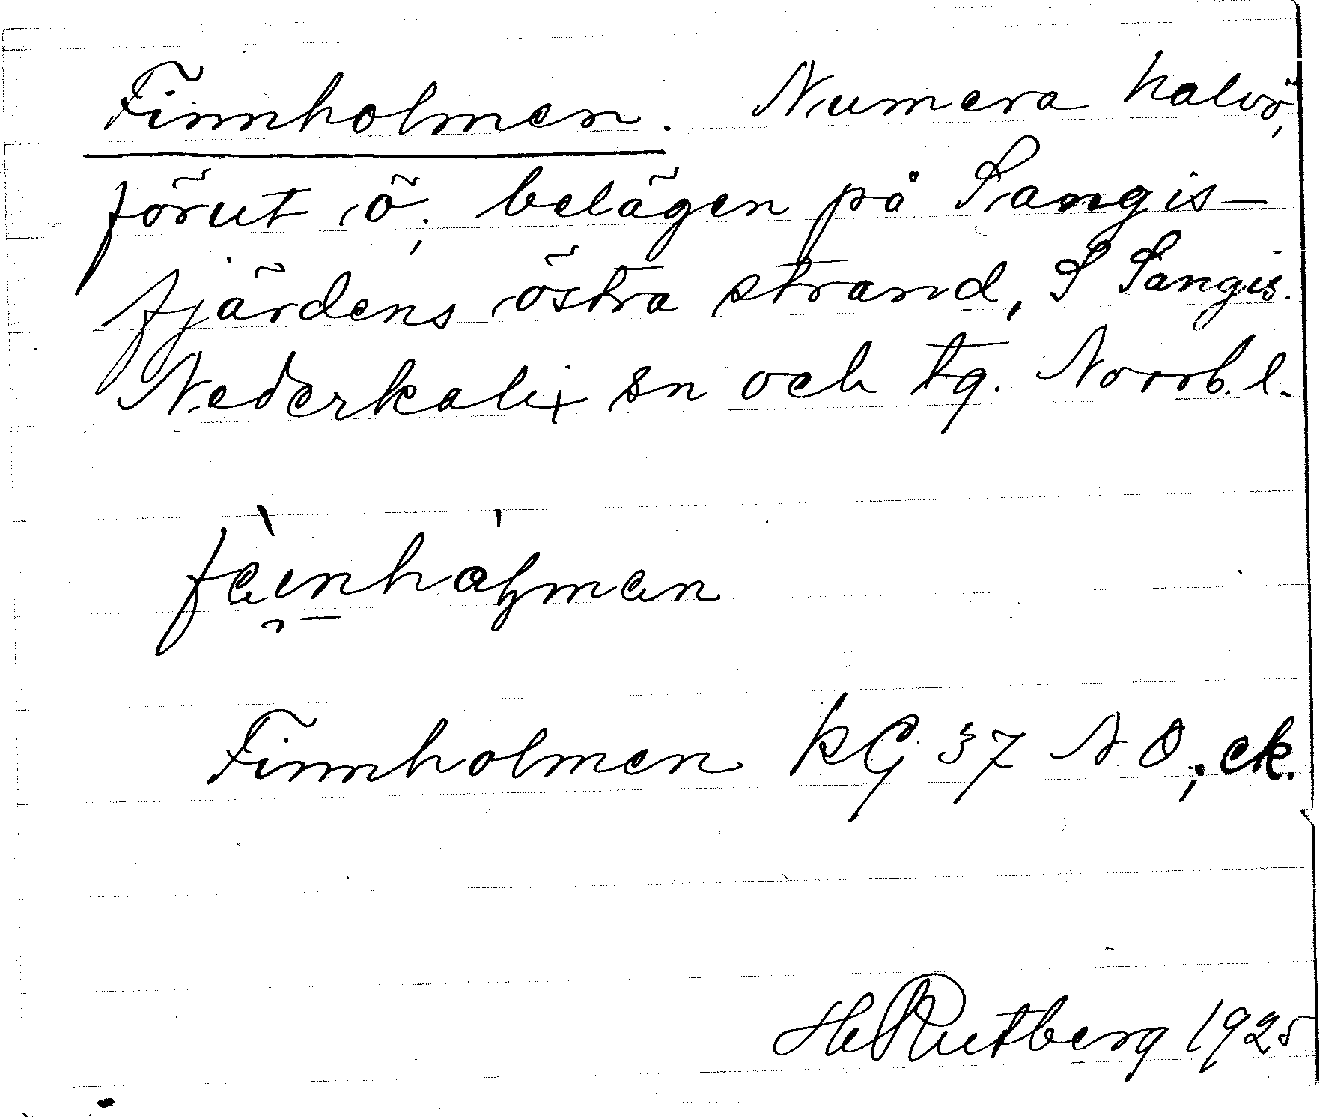 Finnholmen. Numera halvö,
förut ö, belägen på Sangis-
fjärdens östra strand, S Sangis.
Nederkalix sn och tg. Norrb. l.
Finnholmen kG 37 NO, ek.
H Rutberg 1925